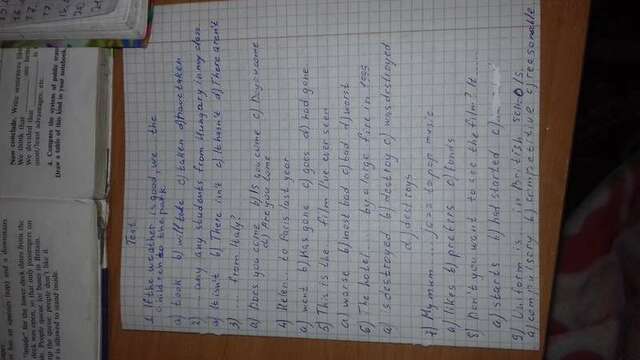 has an upstairs (top) and a downstairs
"inside" for the lower deck dates from the
deck was open, so that only passengers on
People queue for buses in Britain.
the queue people don't like it.
is allowed to stand inside.
Now conclude. Write sentences like
We think that
We decided that
most/least advantages, etc.
4. Compare the system of public
Draw a table of this kind in your notebook.
Test
1 If the weather is good, we ... the
children to the park
a) took b) will take c) taken d) have taken
2) ... any any students from Hungary in my class.
a) It isn't b) There isn't c) It hasn't d) There aren't
3) ... from Italy?
a) Does you come b) Is you come c) Do you come
d) Are you come
4) Helen ... to Paris last year
a) went b) has gone c) goes d) had gone
5) This is the ... film I've ever seen
a) worse b) most bad c) bad d) worst
6) The hotel ..... by a large fire in 1999
a) s destroyed b) destroy c) was destroyed
d) destroys
7) My mum ..... jazz to pop music
a) likes b) prefers c) fonds
8) Don't you want to see the film? It .....
a) starts b) had started c)
9) Uniform is ... in British schools.
a) compulsory b) competitive c) reasonable